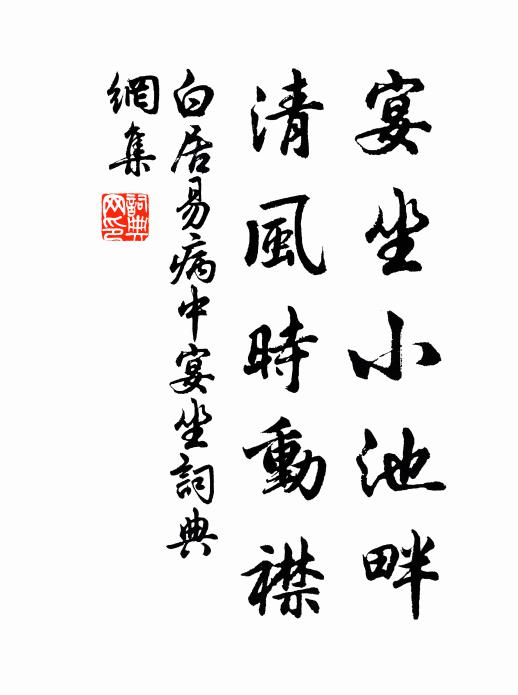 宴坐小池畔
清風時動襟
白居易病中宴坐詞典
網集
詞典網印